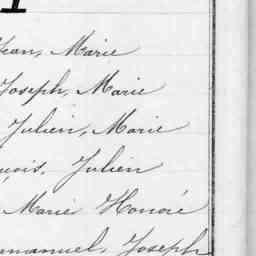 Jean, Marie
Joseph, Marie
Julien, Marie
çois, Julien
Marie Honoré
mmanuel, Joseph